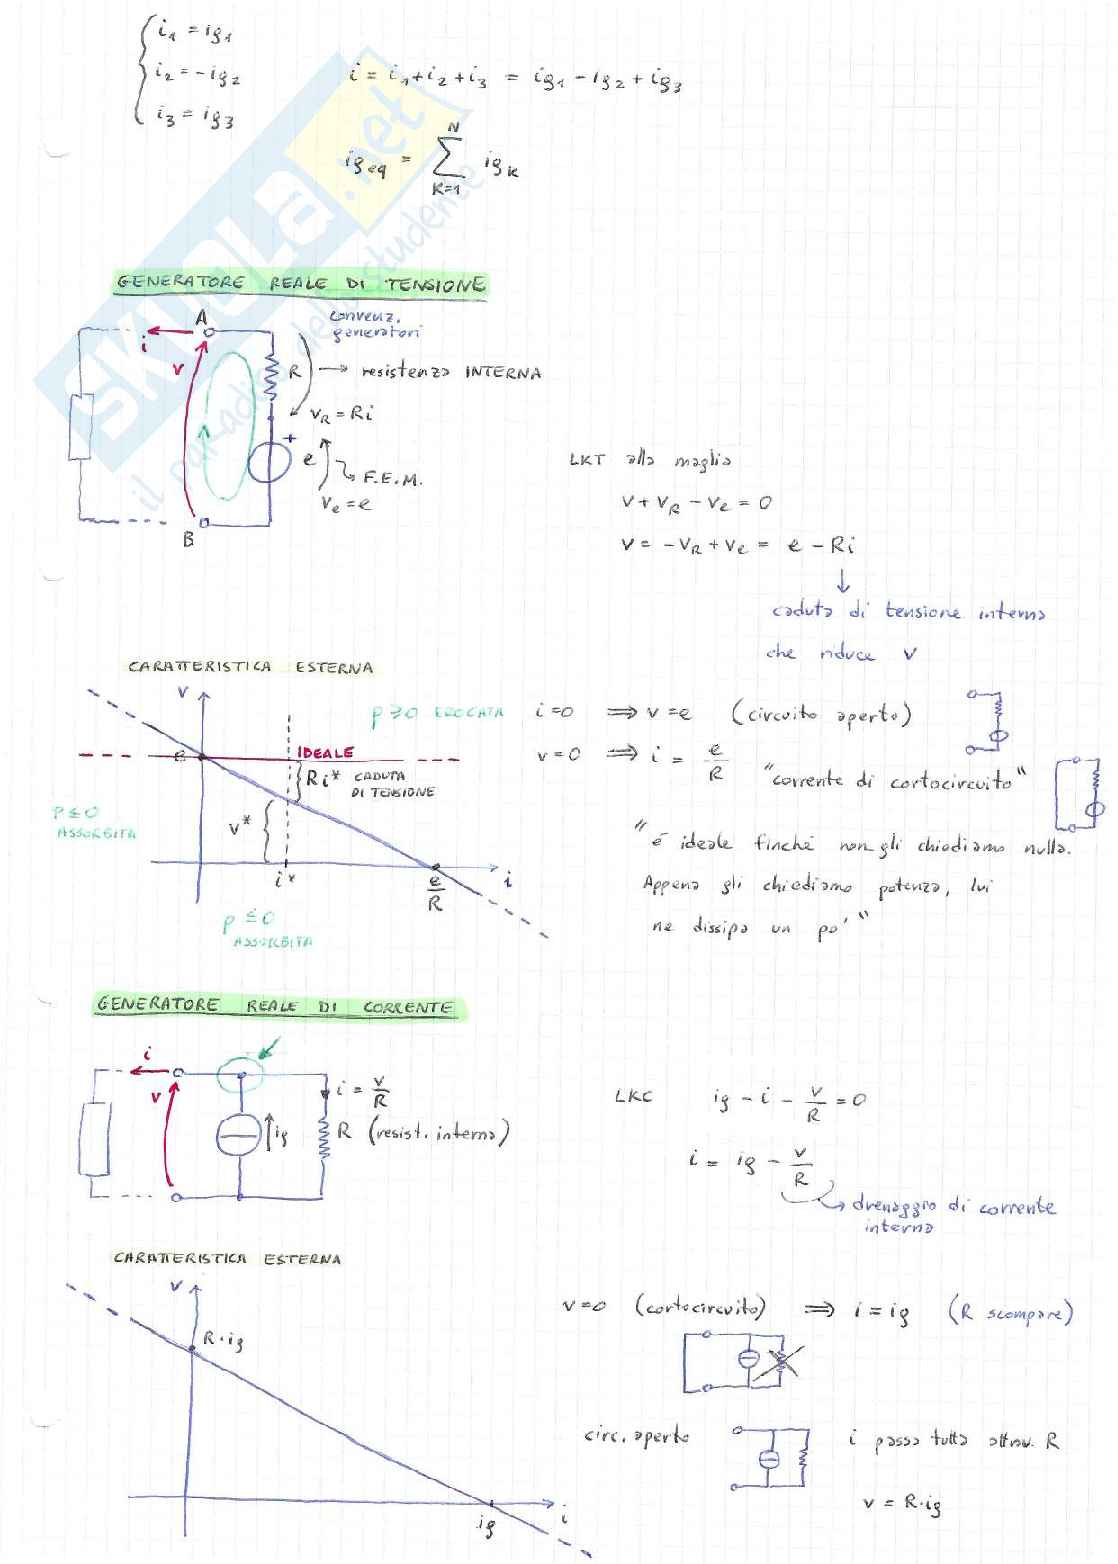 i₁ = ig₁
i₂ = -ig₂
i₃ = ig₃
i = i₁+i₂+i₃ = ig₁ - ig₂ + ig₃
ig eq = N Σ K=1 ig K
SKUOLA.net
il paradiso dello studente
GENERATORE REALE DI TENSIONE
convenz.
generatori
A
i
v
R → resistenza INTERNA
v_R = Ri
+
e
F.E.M.
v_e = e
B
LKT alla maglia
v + v_R - v_e = 0
v = -v_R + v_e = e - Ri
↓
caduta di tensione interna
che riduce v
CARATTERISTICA ESTERNA
v
p ≥ 0 EROGATA
e
IDEALE
Ri* CADUTA
DI TENSIONE
p ≤ 0
ASSORBITA
v*
i*
e/R
i
p ≤ 0
ASSORBITA
i=0 ⇒ v=e (circuito aperto)
v=0 ⇒ i = e/R "corrente di cortocircuito"
"é ideale finché non gli chiediamo nulla.
Appena gli chiediamo potenza, lui
ne dissipa un po'"
GENERATORE REALE DI CORRENTE
i
v
i = v/R
ig
R (resist. interna)
LKC ig - i - v/R = 0
i = ig - v/R
drenaggio di corrente
interna
CARATTERISTICA ESTERNA
v
R·ig
ig
i
v=0 (cortocircuito) ⇒ i = ig (R scompare)
circ. aperto
i passa tutta attrav. R
v = R·ig